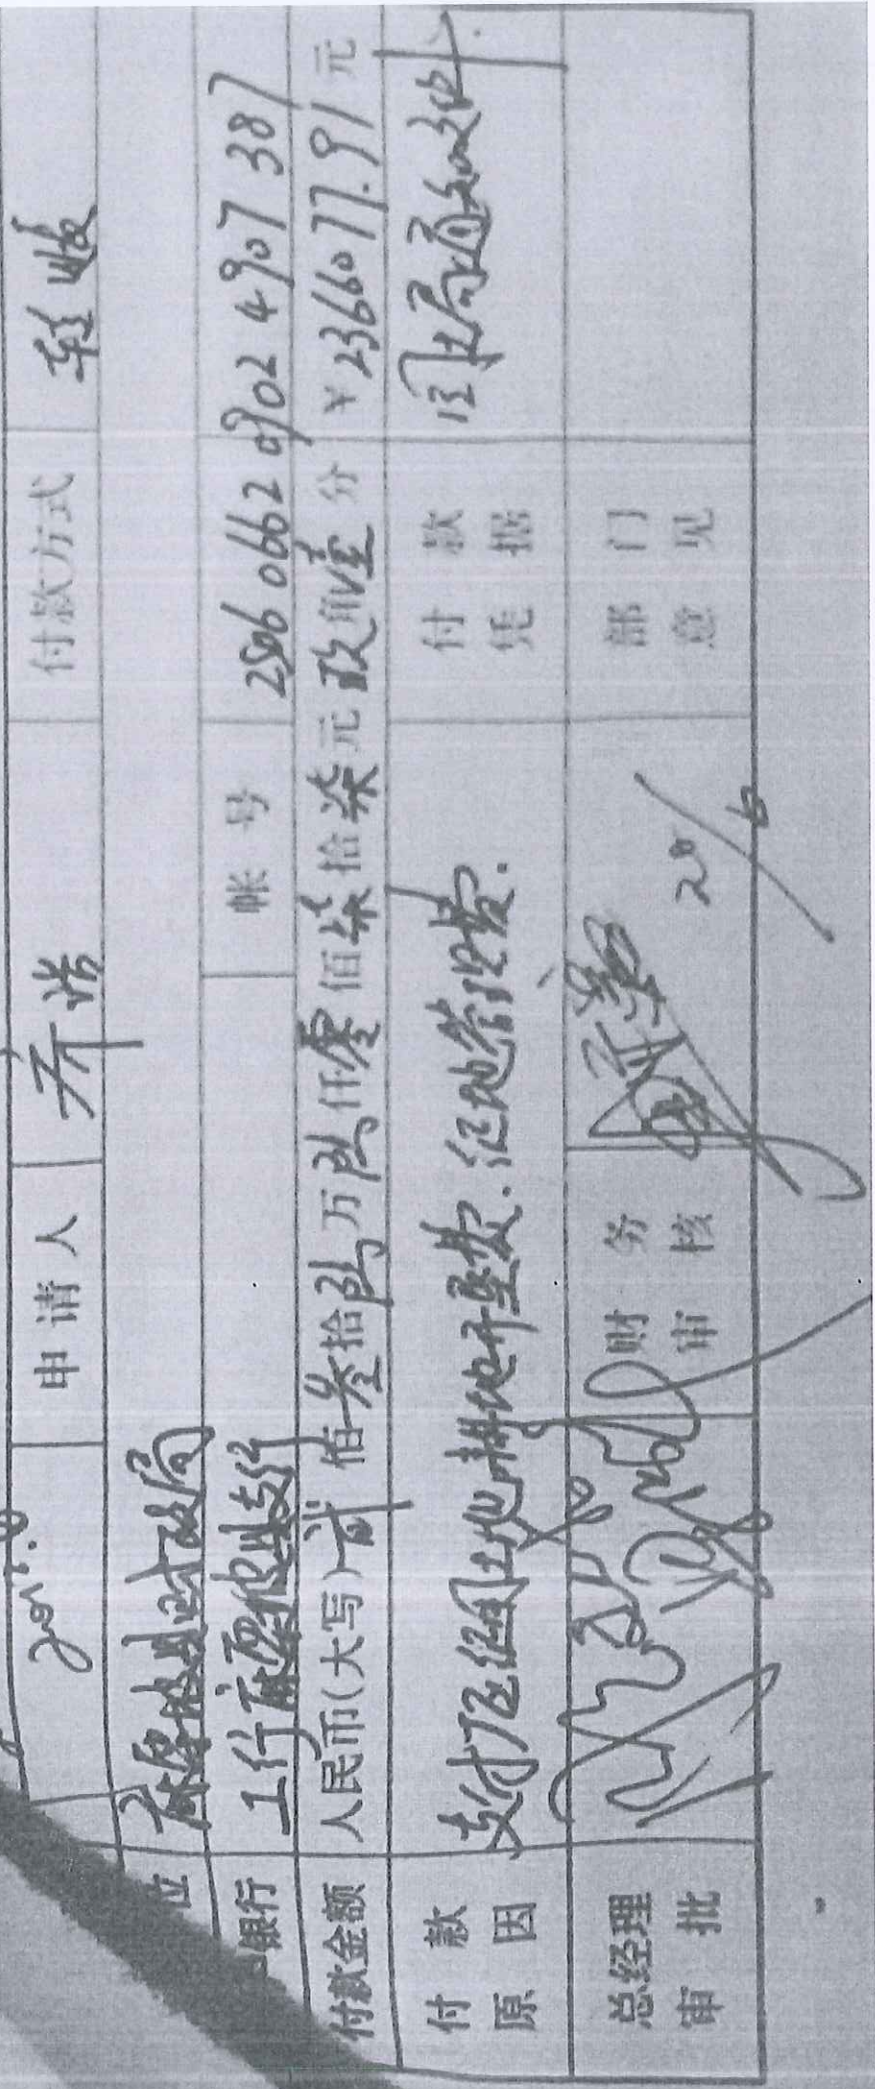 申请人 乔浩 付款方式
位 财政局
银行 工行 支行 帐号 2506 0662 0902 4907 387
付款金额 人民币(大写) 贰佰叁拾陆万陆仟零佰柒拾柒元玖角壹分 ¥2366077.91元
付款原因 支付 征用土地耕地开垦费.征地管理费. 付款凭据 国土局通知文件.
总经理审批 财务审核 20/6 部门意见